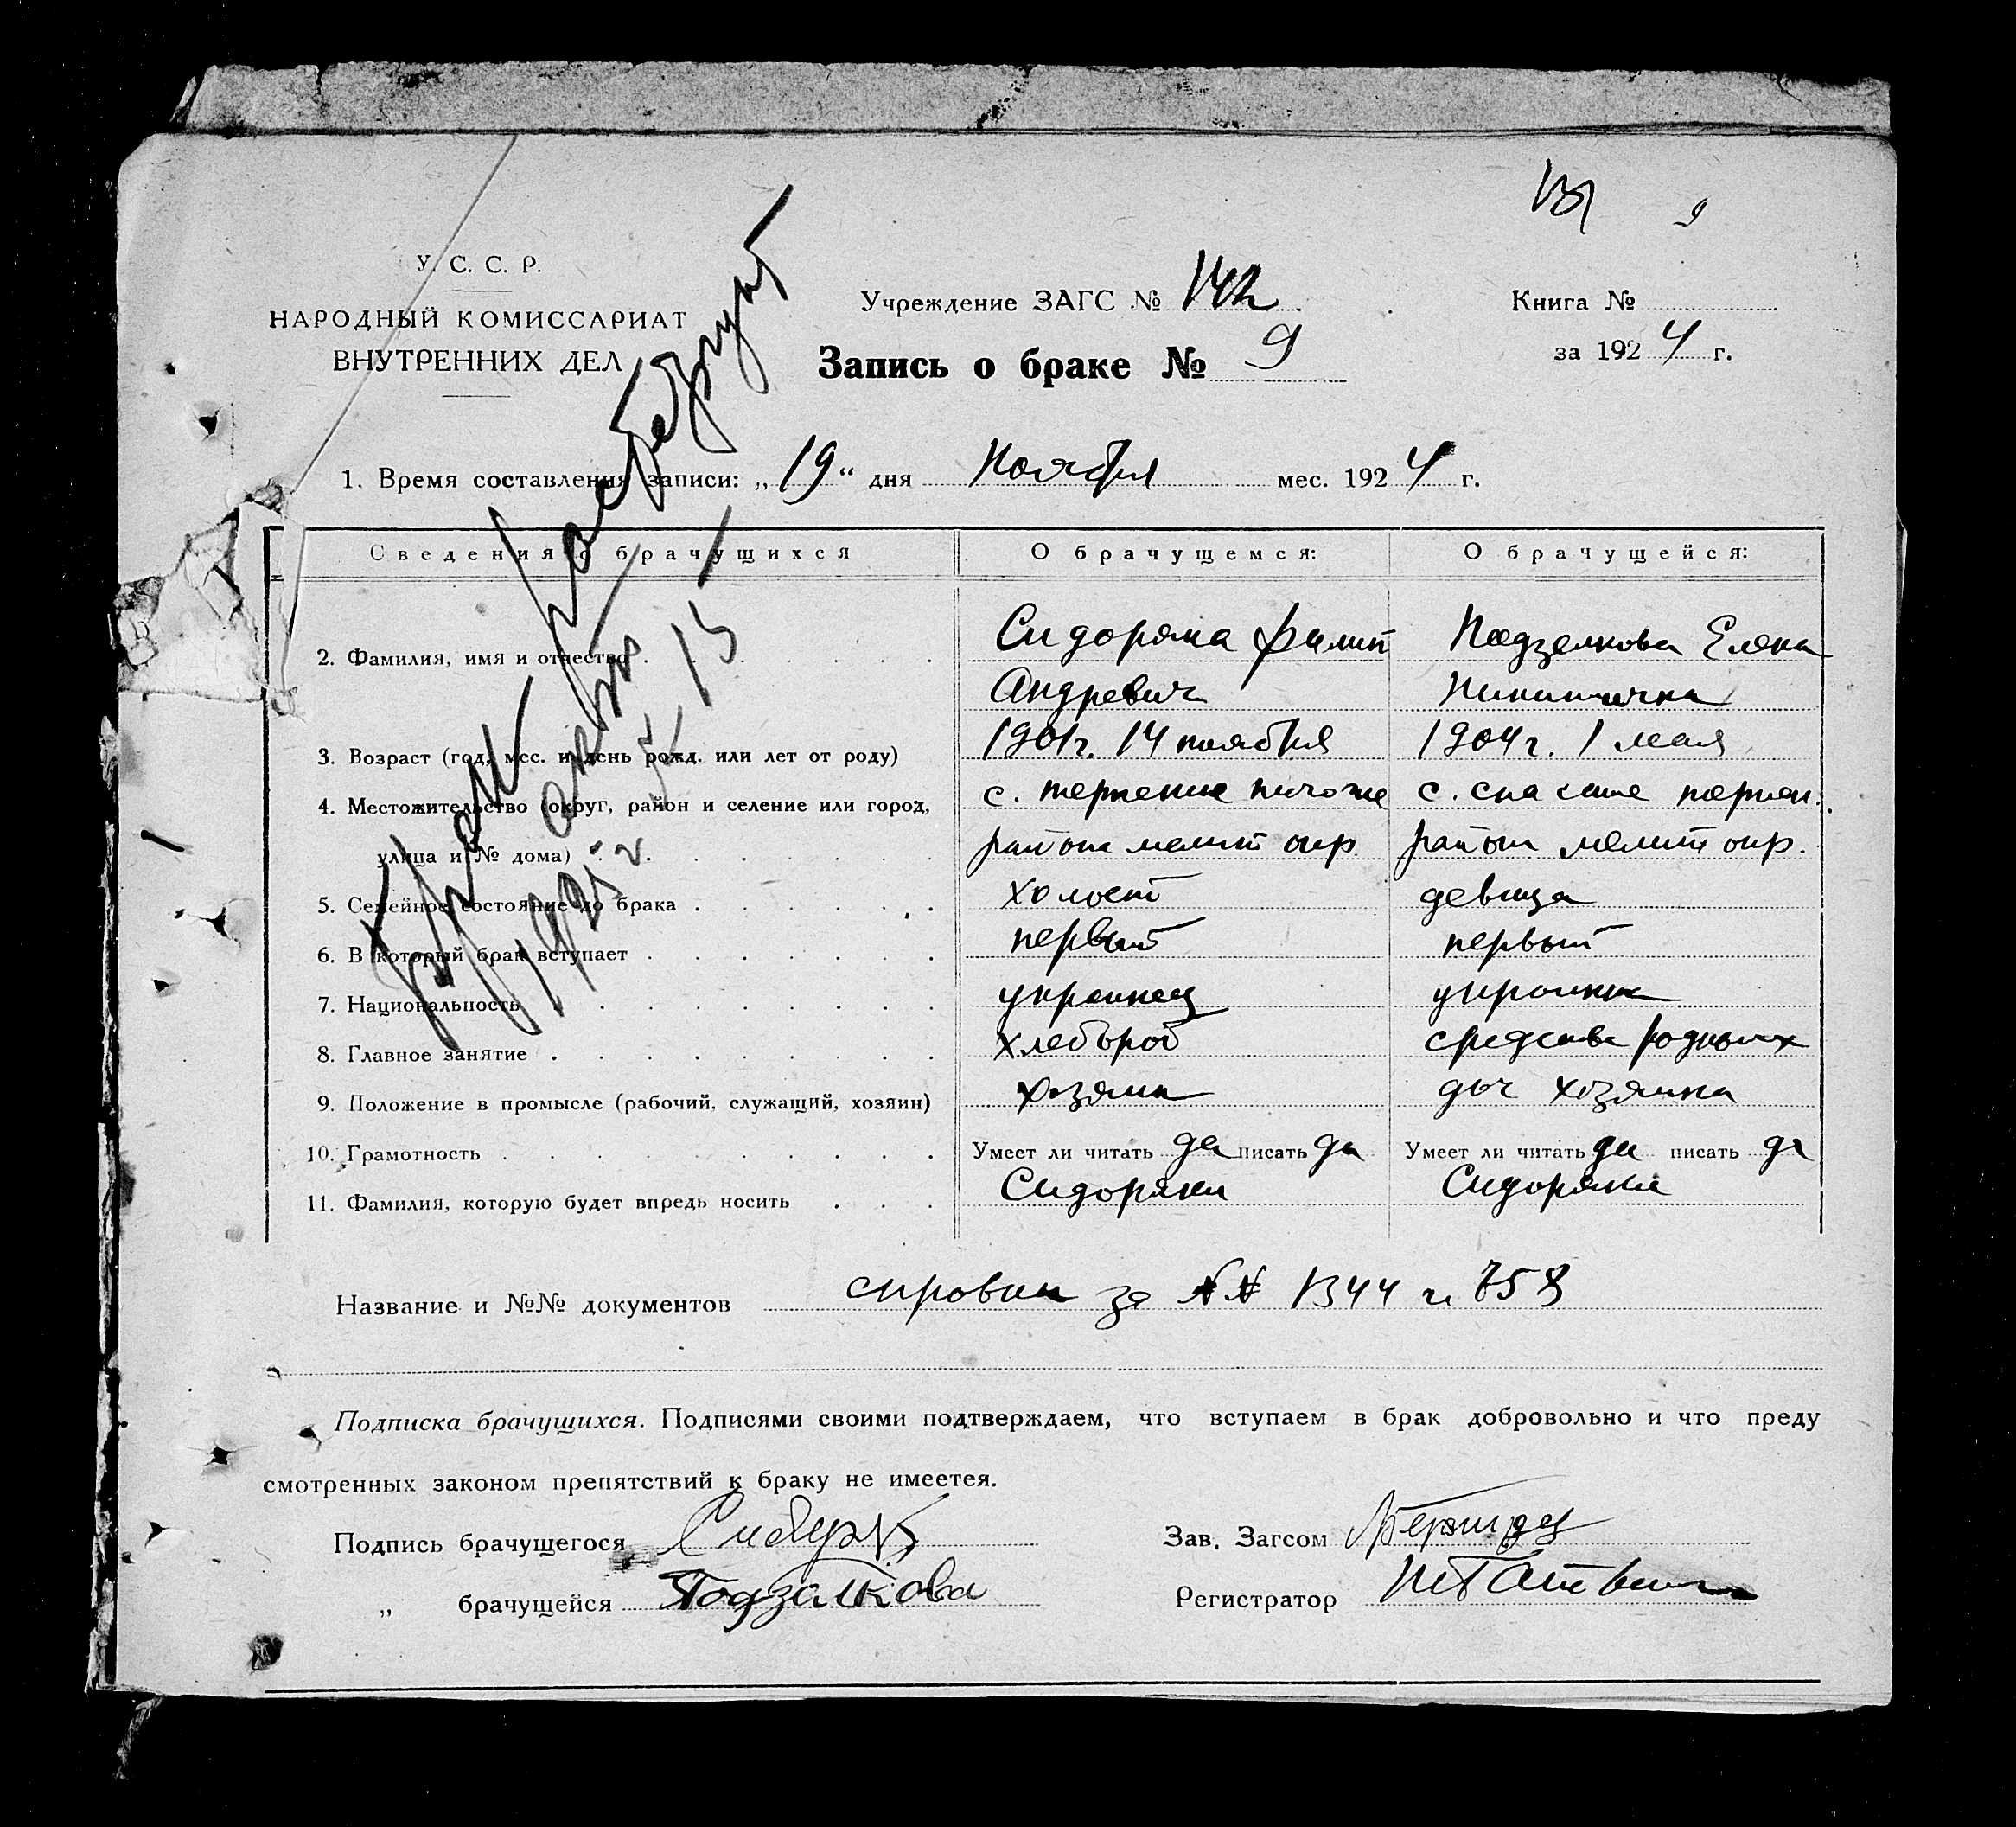 У. С. С. Р.
НАРОДНЫЙ КОМИССАРИАТ
ВНУТРЕННИХ ДЕЛ
9
Учреждение ЗАГС № 142
Запись о браке № 9
Книга №
за 1924 г.
Брак расторгнут
1925 г.
15
1. Время составления записи: „19“ дня Ноября мес. 1924 г.
Сведения о брачущихся О брачущемся: О брачущейся:
2. Фамилия, имя и отчество Сидоряка Филип Подзелкова Елена
Андревич Никитична
3. Возраст (год, мес. и день рожд. или лет от роду) 1901г. 14 ноября 1904г. 1 мая
4. Местожительство (округ, район и селение или город, с. терпение с.
улица и № дома) района мелит окр. район мелит окр.
5. Семейное состояние до брака холост девица
6. В который брак вступает первый первый
7. Национальность украинец украинка
8. Главное занятие хлебороб средства родных
9. Положение в промысле (рабочий, служащий, хозяин) хозяин доч хозяина
10. Грамотность Умеет ли читать да писать да Умеет ли читать да писать да
11. Фамилия, которую будет впредь носить Сидоряка Сидоряка
Название и №№ документов справки за №№ 1344 и 758
Подписка брачущихся. Подписями своими подтверждаем, что вступаем в брак добровольно и что преду
смотренных законом препятствий к браку не имеетея.
Подпись брачущегося Зав. Загсом
„ брачущейся Подзалкова Регистратор